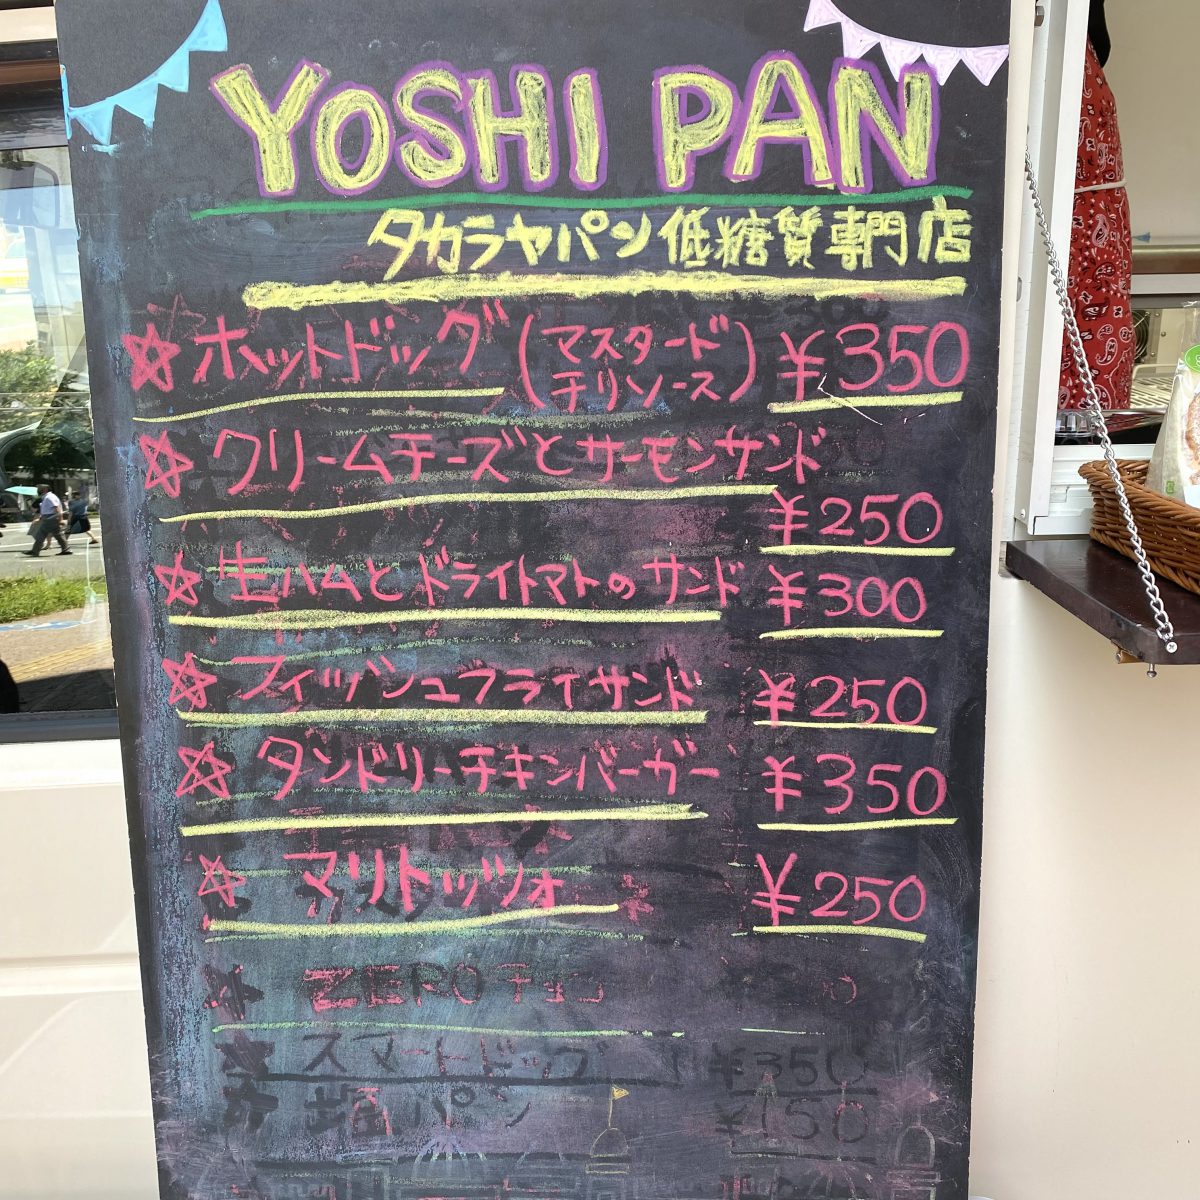 YOSHI PAN
タカラヤパン低糖質専門店
☆ホットドッグ(マスタード チリソース) ¥350
☆クリームチーズとサーモンサンド
¥250
☆生ハムとドライトマトのサンド ¥300
☆フィッシュフライサンド ¥250
☆タンドリーチキンバーガー ¥350
☆マリトッツォ ¥250
★ZEROチョコ
★スマートドッグ ¥350
★塩パン ¥150